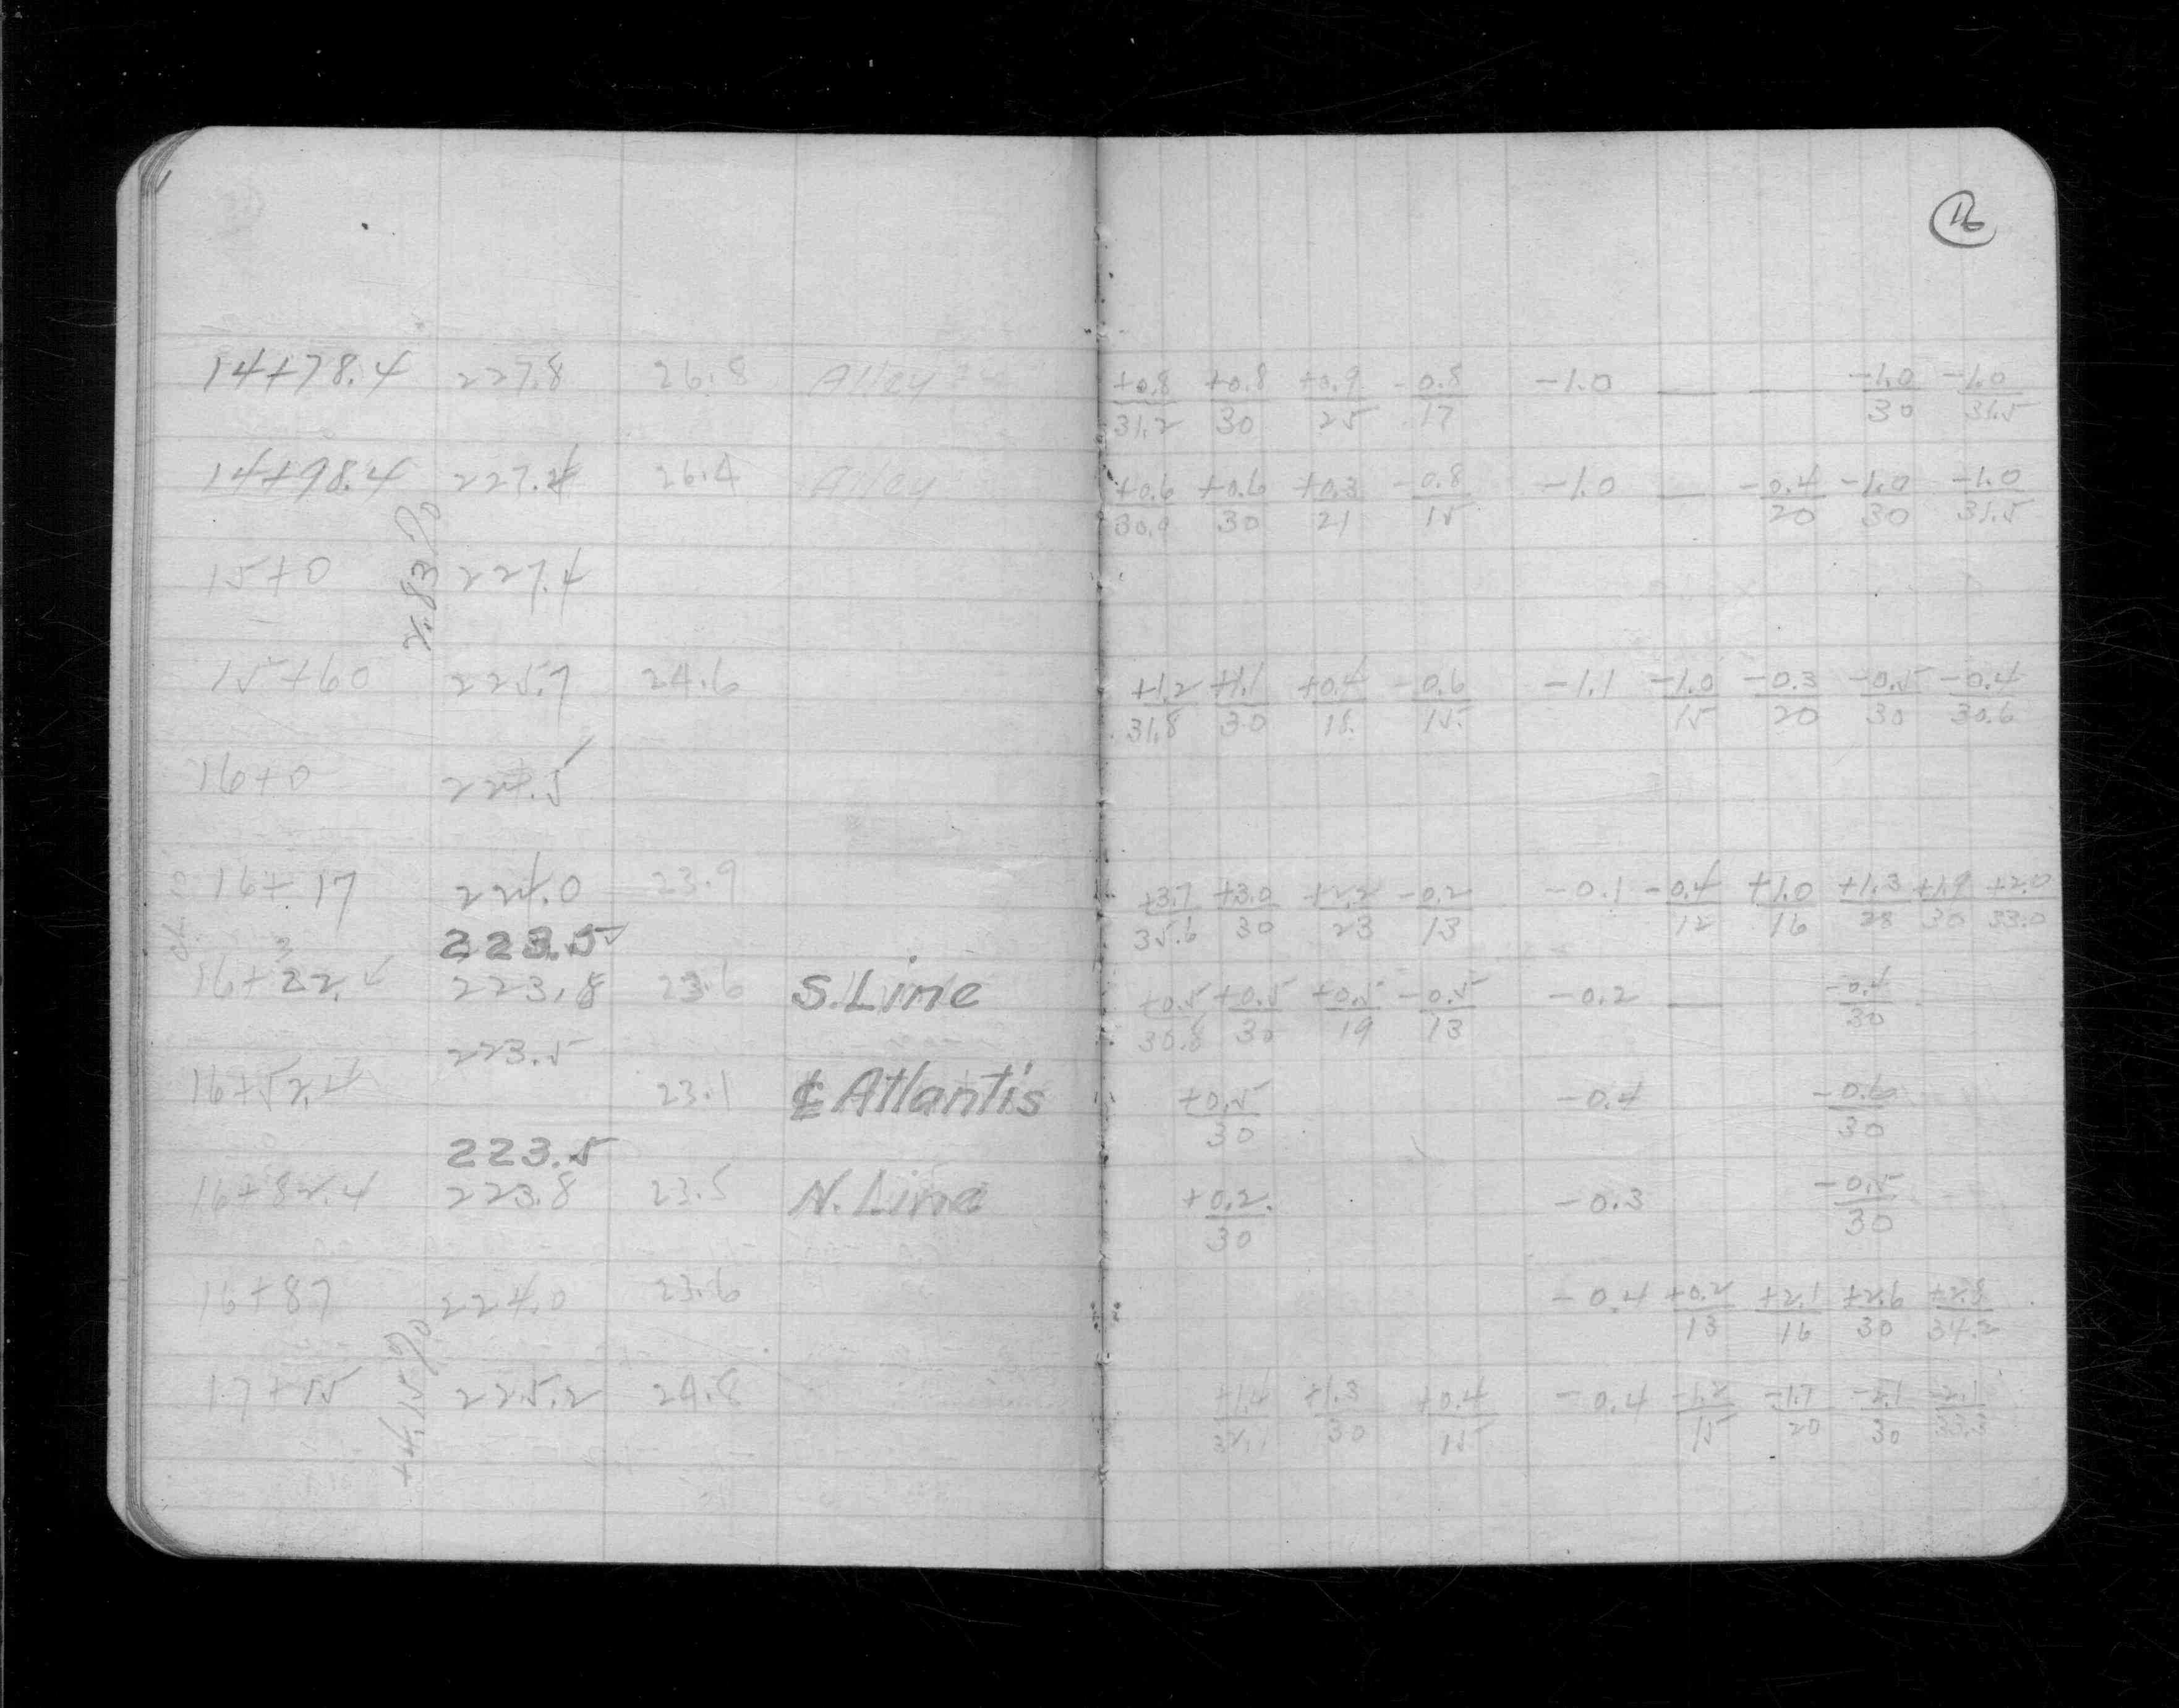 16
14+78.4 227.8 26.8 Alley +0.8/31.2 +0.8/30 +0.9/25 -0.8/17 -1.0 — — -1.0/30 -1.0/31.5
14+98.4 227.4 26.4 Alley +0.6/30.9 +0.6/30 +0.3/21 -0.8/15 -1.0 — -0.4/20 -1.0/30 -1.0/31.5
15+0 227.4
15+60 225.7 24.6 +1.2/31.8 +1.1/30 +0.4/18 -0.6/15 -1.1 -1.0/15 -0.3/20 -0.5/30 -0.4/30.6
16+0 224.5
16+17 224.0 23.9 +3.7/35.6 +3.0/30 +2.2/23 -0.2/13 -0.1 -0.4/12 +1.0/16 +1.3/28 +1.9/30 +2.0/33.0
223.5
16+22.4 223.8 23.6 S. Line +0.5/30.8 +0.5/30 +0.5/19 -0.5/13 -0.2 — -0.4/30
223.5
16+52.4 23.1 ℄ Atlantis +0.5/30 -0.4 -0.6/30
223.5
16+82.4 223.8 23.5 N. Line +0.2/30 -0.3 -0.5/30
16+87 224.0 23.6 -0.4 +0.2/13 +2.1/16 +2.6/30 +2.8/34.2
17+15 225.2 24.8 +1.4/32.1 +1.3/30 +0.4/15 -0.4 -1.2/15 -1.7/20 -2.1/30 -2.1/33.3
.83%
+4.15%